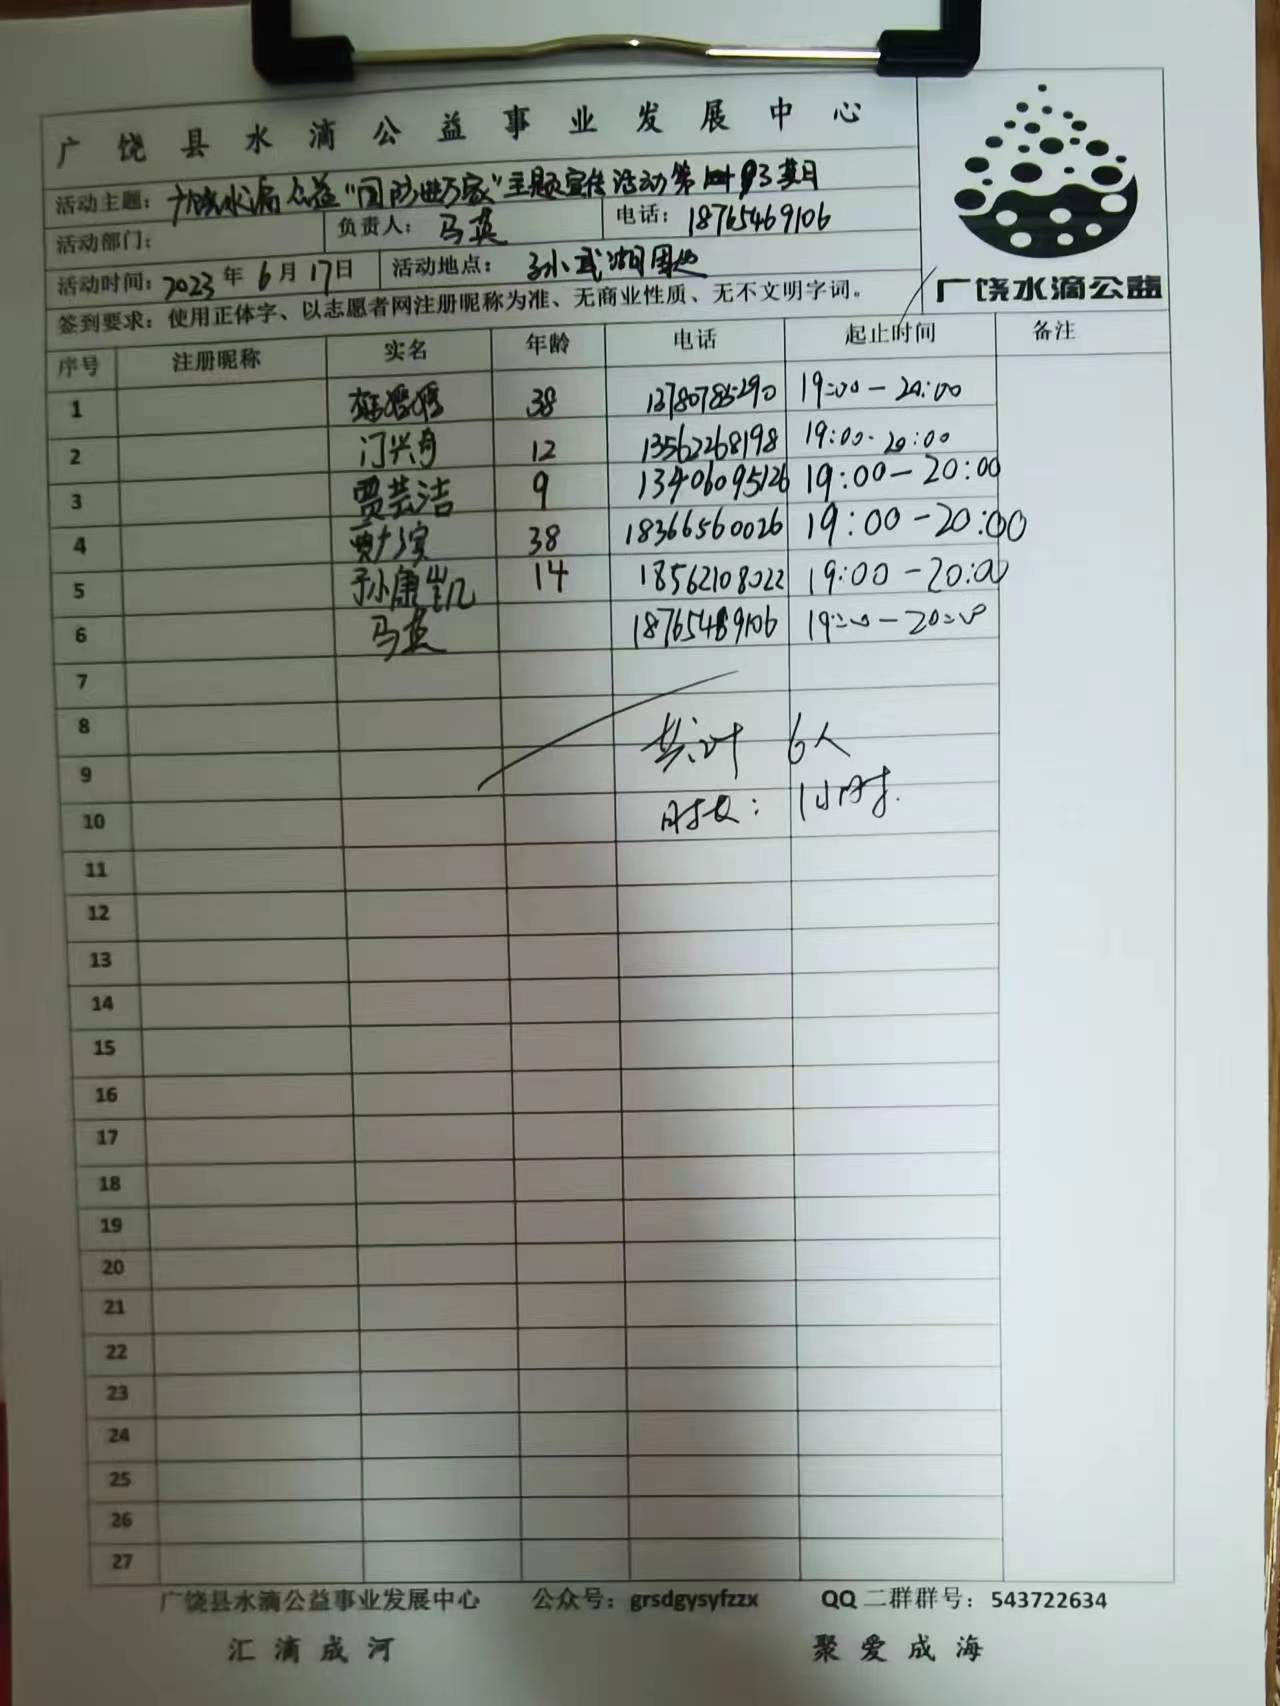 广饶县水滴公益事业发展中心
活动主题：广饶水滴公益“国防进万家”主题宣传活动第 3期
活动部门： 负责人：马英 电话：18765469106
活动时间：2023年6月17日 活动地点：孙武湖周边
签到要求：使用正体字、以志愿者网注册昵称为准、无商业性质、无不文明字词。
广饶水滴公益
序号 注册昵称 实名 年龄 电话 起止时间 备注
1 38 13780785290 19:00-20:00
2 门兴舟 12 13562268198 19:00-20:00
3 贾芸洁 9 13406095126 19:00-20:00
4 38 18366560026 19:00-20:00
5 孙康凯 14 18562108022 19:00-20:00
6 马英 19:00-20:00
7
8 共计 6人
9
10 时长：1小时.
11
12
13
14
15
16
17
18
19
20
21
22
23
24
25
26
27
广饶县水滴公益事业发展中心 公众号：grsdgysyfzzx QQ二群群号：543722634
汇滴成河 聚爱成海